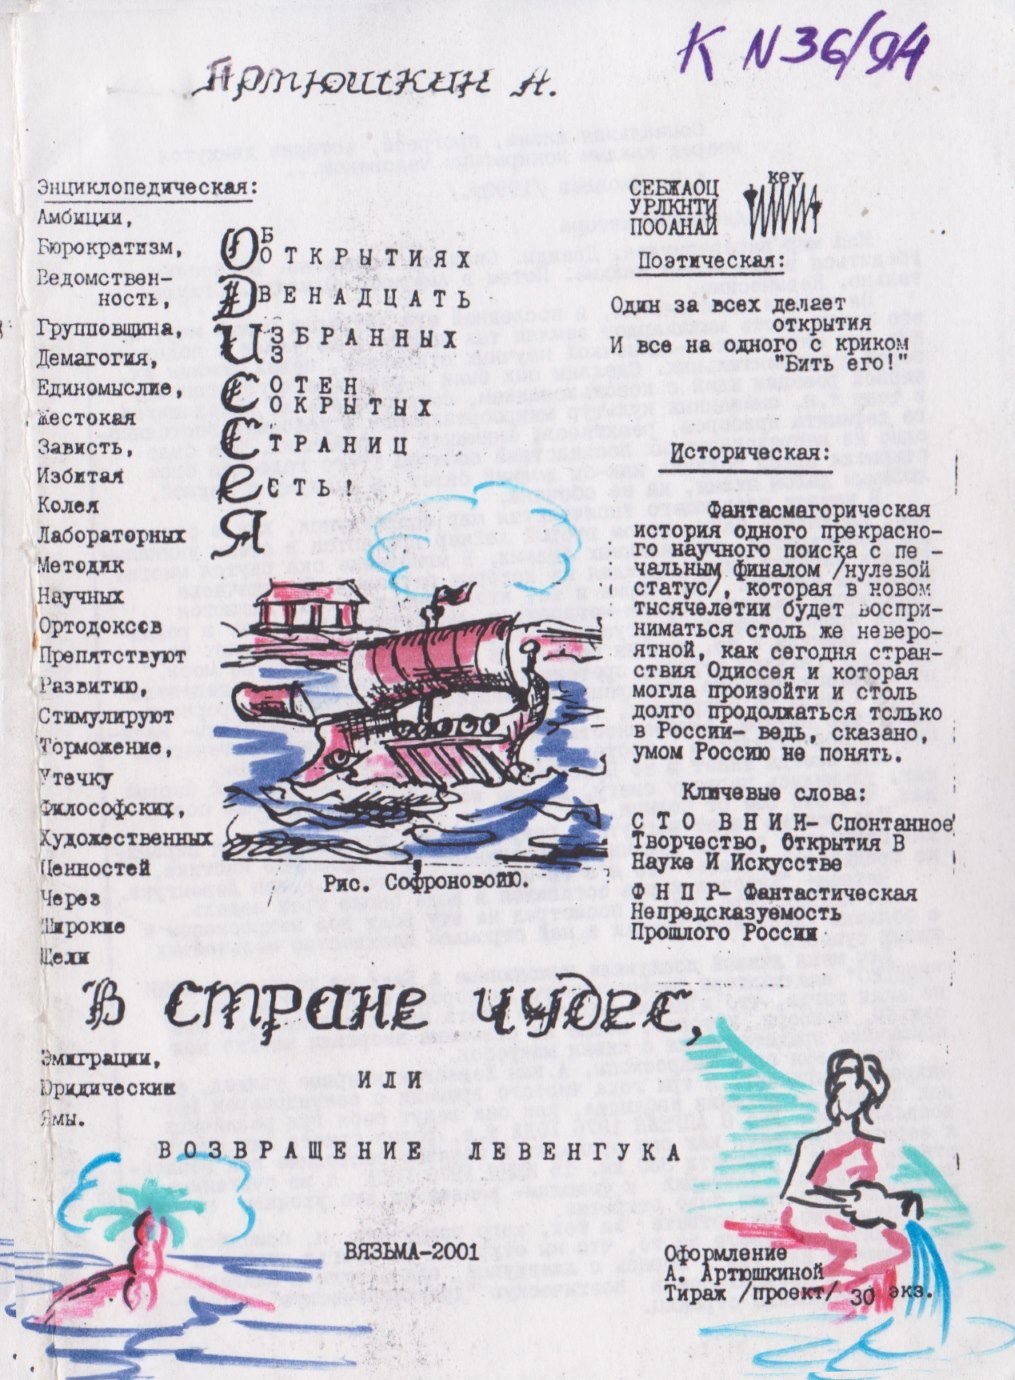 К N 36/94
Артюшкин А.
Энциклопедическая:
Амбиции,
Бюрократизм,
Ведомствен-
ность,
Групповщина,
Демагогия,
Единомыслие,
Жестокая
Зависть,
Избитая
Колея
Лабораторных
Методик
Научных
Ортодоксов
Препятствуют
Развитию,
Стимулируют
Торможение,
Утечку
Философских,
Художественных
Ценностей
Через
Широкие
Щели
ОБ
О ОТКРЫТИЯХ
ДВЕНАДЦАТЬ
ИЗБРАННЫХ
ИЗ
СОТЕН
СОКРЫТЫХ
СТРАНИЦ
ЕСТЬ!
Я
СЕБЖАОЦ
УРЛКНТИ
ПООАНАЙ
key
Поэтическая:
Один за всех делает
открытия
И все на одного с криком
"Бить его!"
Историческая:
Фантасмагорическая
история одного прекрасно-
го научного поиска с пе -
чальным финалом /нулевой
статус/, которая в новом
тысячелетии будет воспри-
ниматься столь же неверо-
ятной, как сегодня стран-
ствия Одиссея и которая
могла произойти и столь
долго продолжаться только
в России- ведь, сказано,
умом Россию не понять.
Ключевые слова:
С Т О В Н И И- Спонтанное
Творчество, Открытия В
Науке И Искусстве
Ф Н П Р- Фантастическая
Непредсказуемость
Прошлого России
Рис. Софроновой Ю.
В стране чудес,
Эмиграции,
Юридические
Ямы.
ИЛИ
ВОЗВРАЩЕНИЕ ЛЕВЕНГУКА
ВЯЗЬМА-2001
Оформление
А. Артюшкиной
Тираж /проект/ 30 экз.